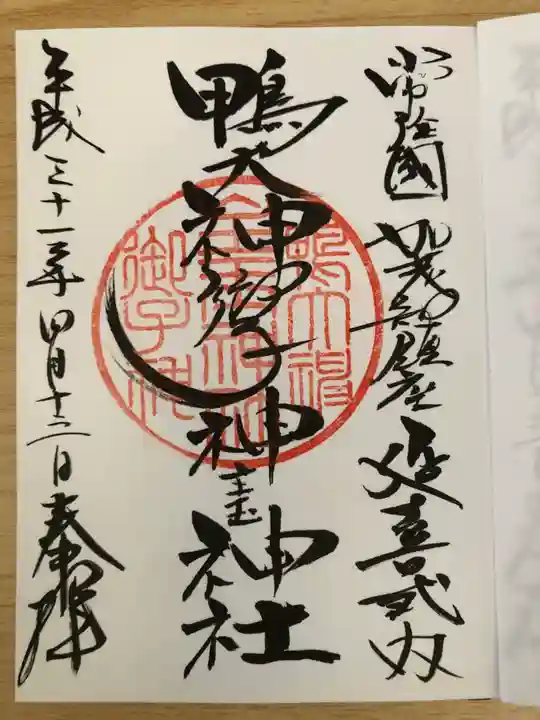 常陸國 加茂部鎮座 延喜式内
鴨大神御子神主玉神社
平成三十一年四月十二日奉拝